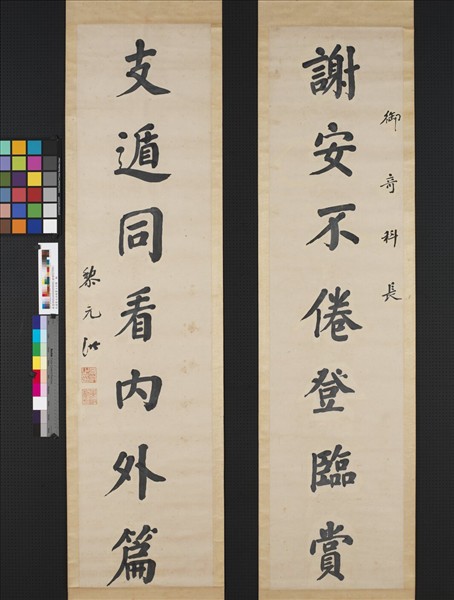 御奇科長
謝安不倦登臨賞
支遁同看內外篇
黎元洪